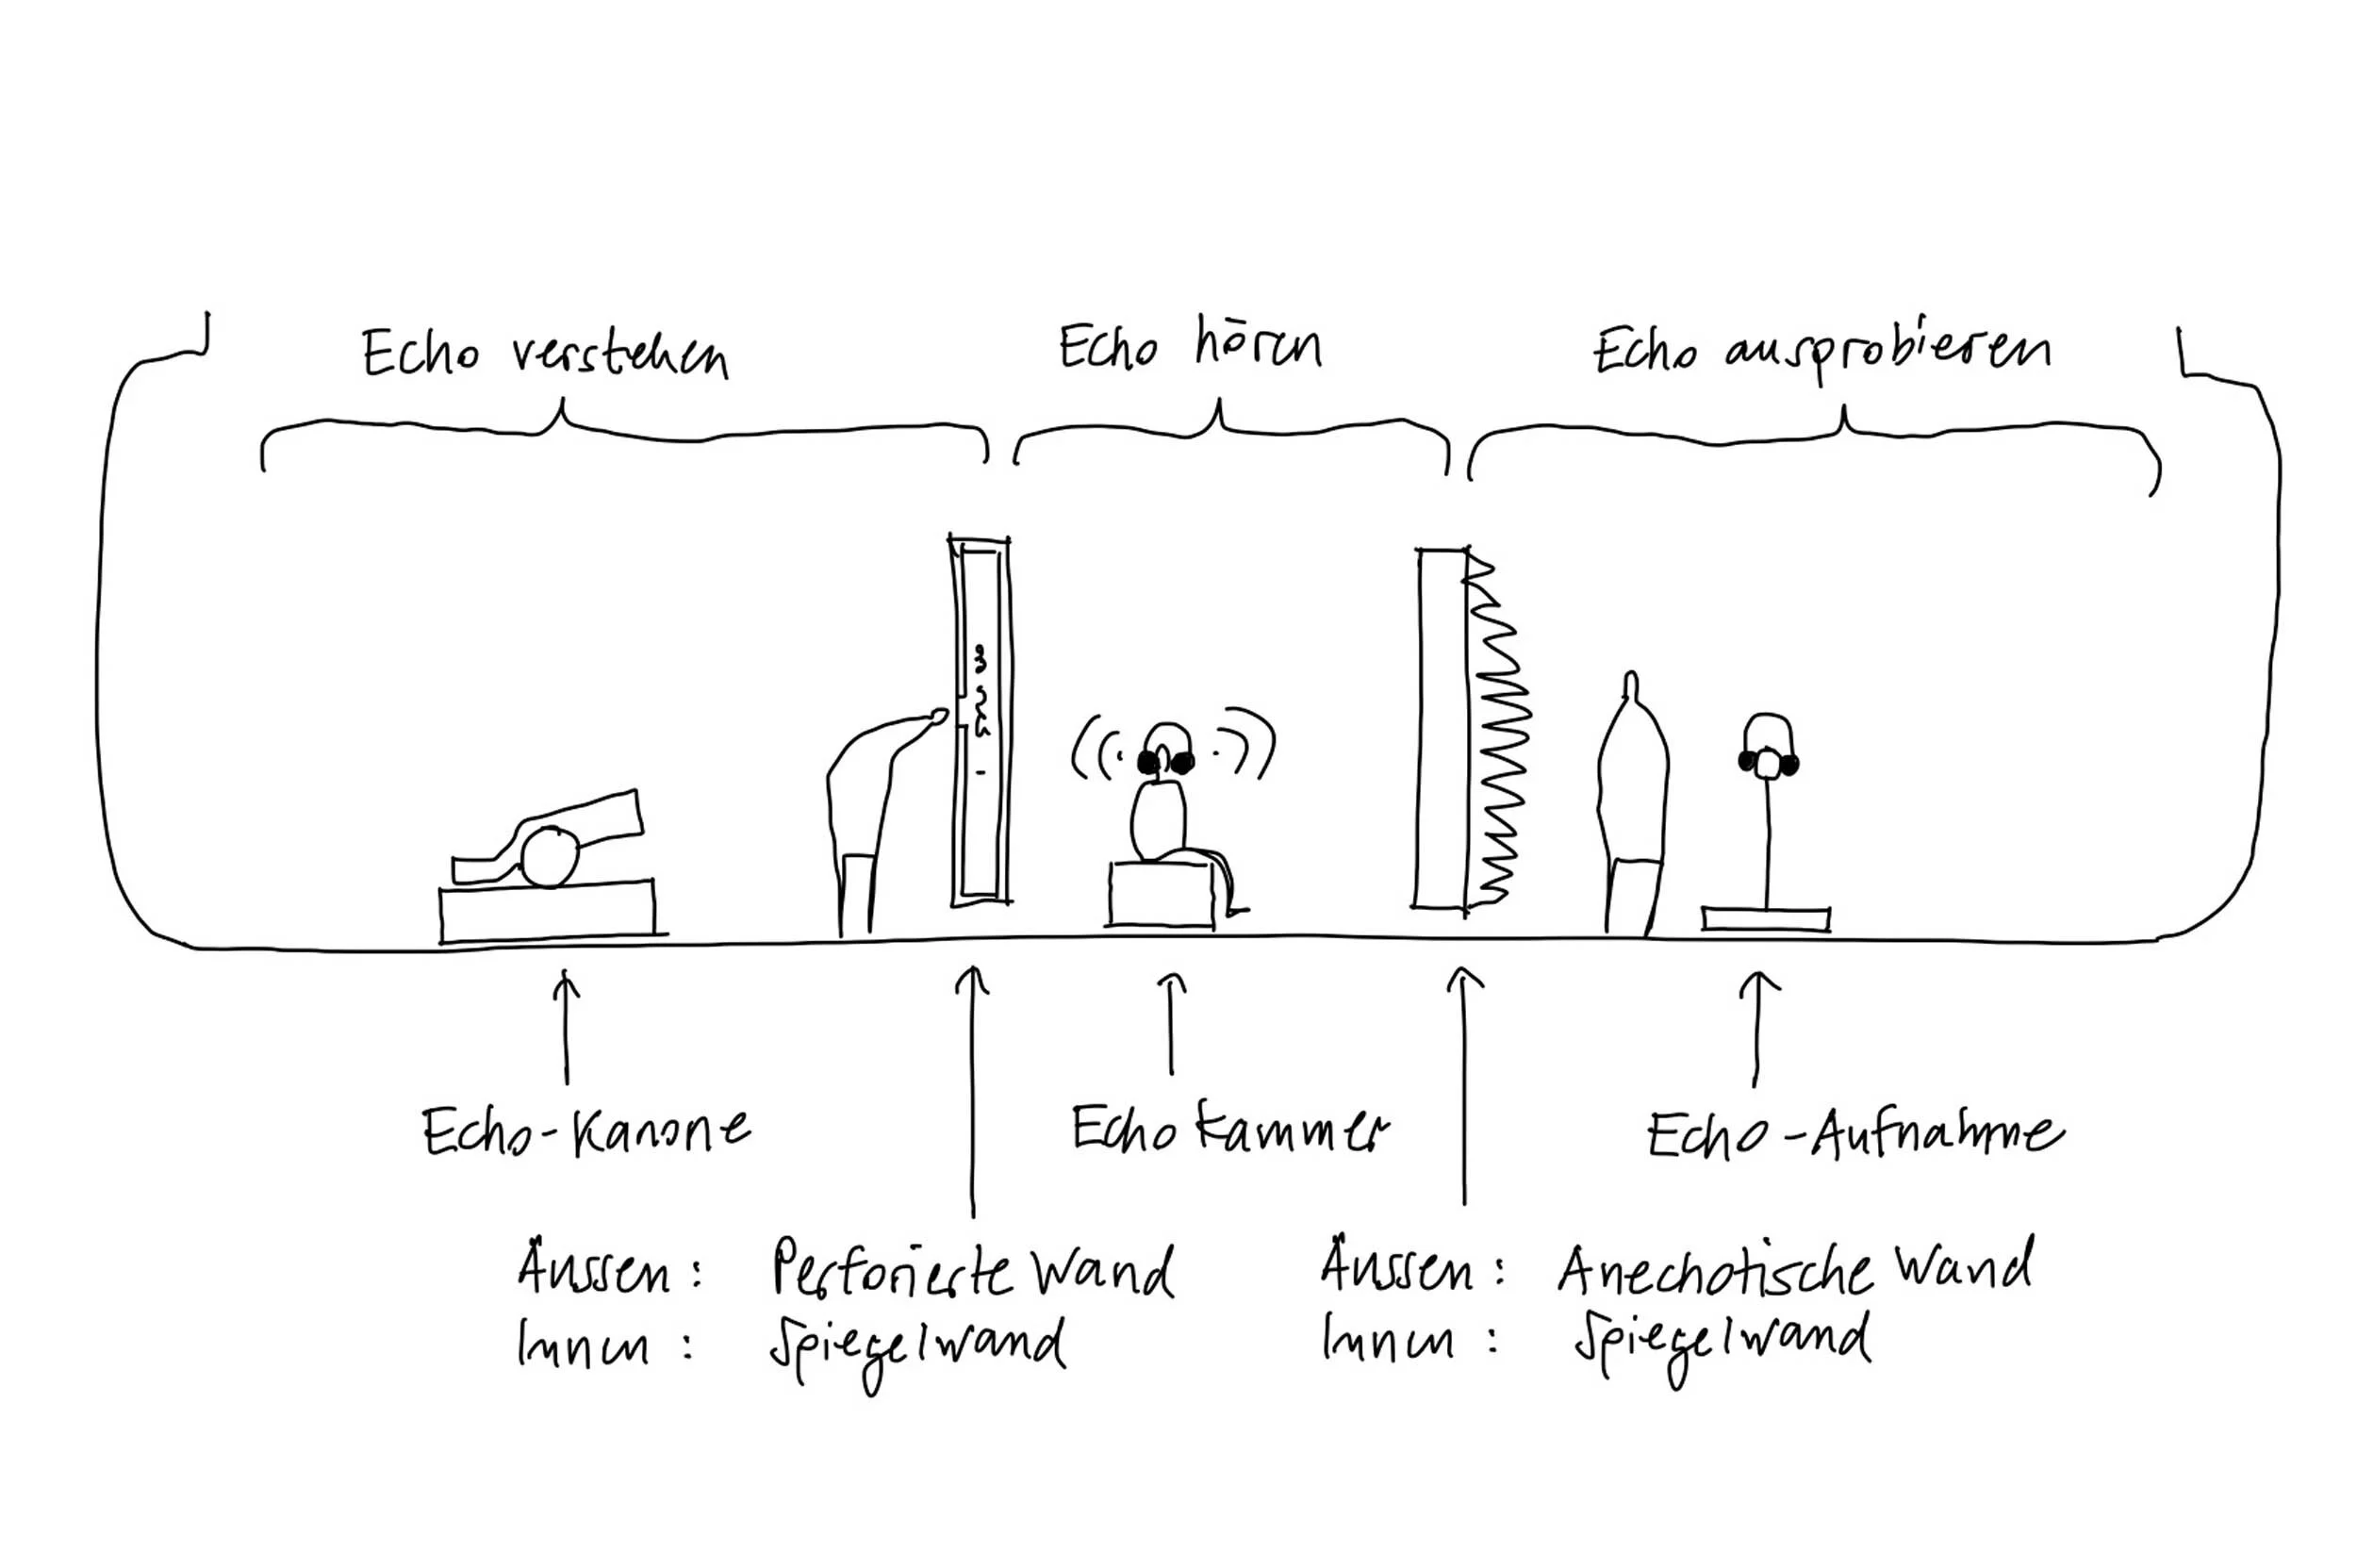 Echo verstehen
Echo hören
Echo ausprobieren
Echo-Kanone
Echo Kammer
Echo-Aufnahme
Äussen: Perforierte Wand
Innen: Spiegelwand
Äussen: Anechotische Wand
Innen: Spiegelwand